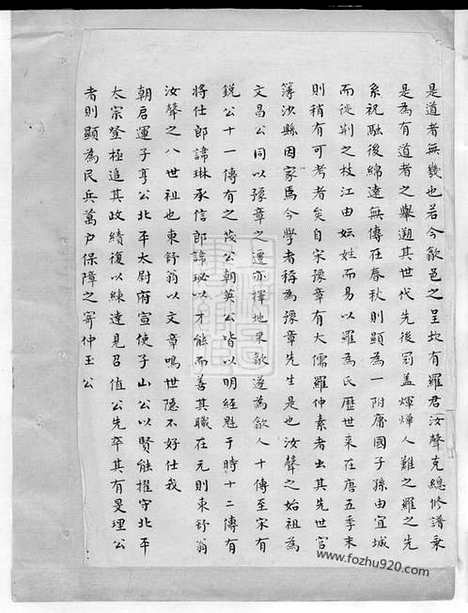 是道者無幾也若今歙邑之呈坎有羅君汝聲克總修譜秉
是為有道者之舉遡其世代先後冠盖煇燁人難之羅之先
系祝融後綿遠無傳在春秋則顯為一附庸國子孫由宜城
而徙荆之枝江由妘姓而易以羅為氏歷世来在唐五季末
則稍有可考者矣自宋豫章有大儒羅仲素者出其先世官
簿沙縣因家焉今學者稱為豫章先生是也汝聲之始祖為
文昌公同以豫章之遷亦擇地來歙遂為歙人十傳至宋有
鋭公十一傳有之茂公朝英公皆以明經魁于時十二傳有
將仕郎諱琳承信郎諱珌以才能而善其職在元則東舒翁
汝聲之八世祖也東舒翁以文章鳴世隱不好仕我
朝启運子亨公北平太尉府宣使子山公以賢能擢守北平
太宗登極追其政績復以練達見召值公先卒其有旻理公
者則顯為民兵萬户保障之寄仲玉公
www.fozhu920.com